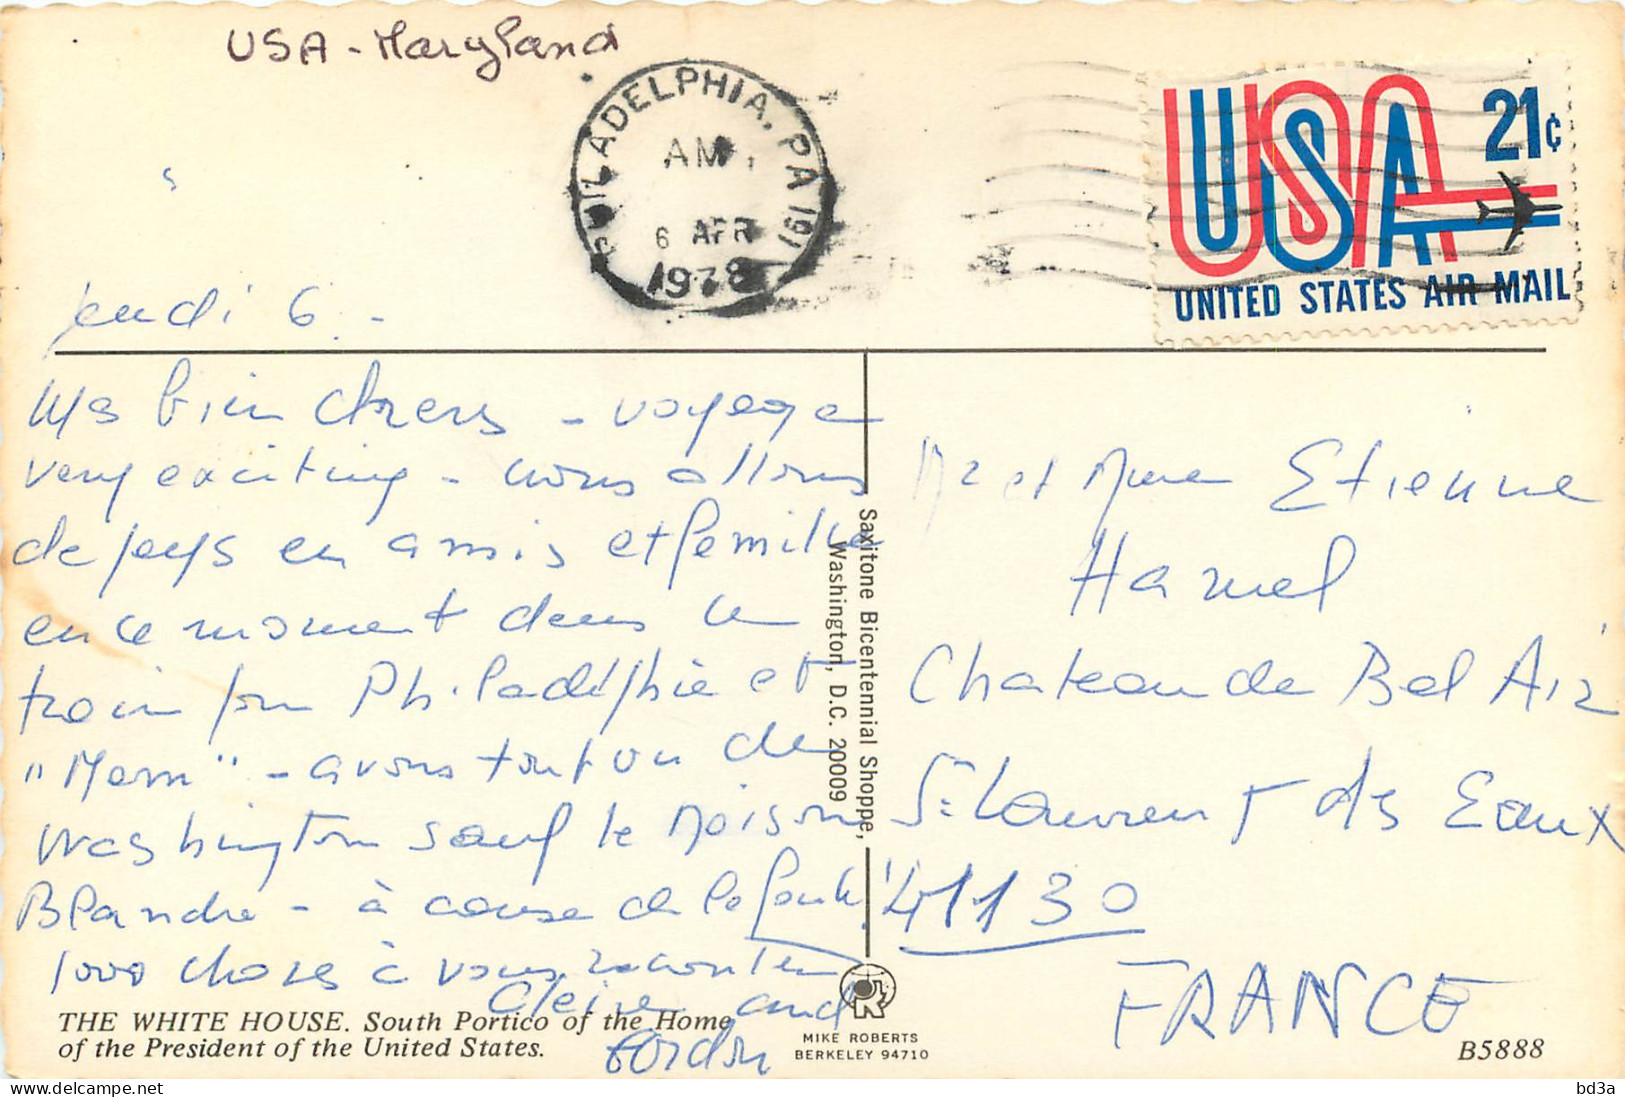 USA - Maryland
PHILADELPHIA, PA 191
AM
6 APR
1978
USA 21c
UNITED STATES AIR MAIL
jeudi 6 -
Mes bien chers - voyage
very exciting - nous allons
de pays en amis et famille
en ce moment dans le
train pour Philadélphie et
"Mom" - avons tout vu de
Washington sauf le Maison
Blanche - à cause de la foule!
1000 choses à vous raconter
Claire and
Gordon
Mr et Mme Etienne
Hamel
Chateau de Bel Air
St Laurent des Eaux
41130
FRANCE
Saxitone Bicentennial Shoppe,
Washington, D.C. 20009
THE WHITE HOUSE. South Portico of the Home
of the President of the United States.
R
MIKE ROBERTS
BERKELEY 94710
B5888
delcampe.net
bd3a